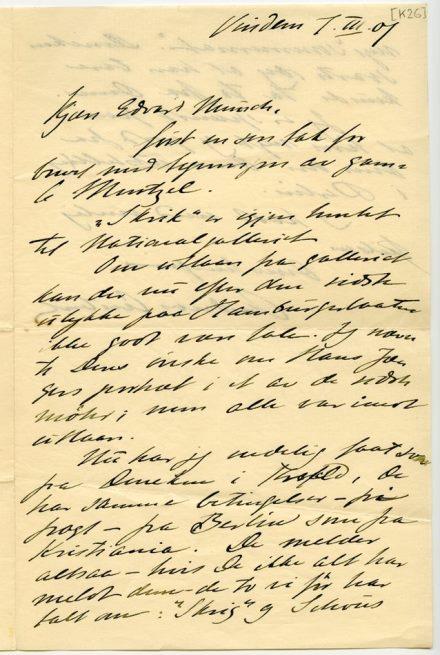 [K26]
Vinderen 7. III. 07
Kjære Edvard Munch.
Først en stor tak for
brevet med tegningen av gam-
le Mentzel.
"Skrik" er igjen hentet
til Nationalgalleriet
Om utlaan fra galleriet
kan der nu efter den sidste
ulykke paa Hamburgerbaaten
ikke godt være tale. Jeg nævn
te Deres ønske om Hans Jæ-
gers portræt i et av de sidste
møter; men alle var imot
utlaan.
Nu har jeg endelig faat svar
fra i De
har samme betingelser – fri
fragt – fra Berlin som fra
Kristiania. De melder
altsaa – hvis De ikke alt har
meldt dem – de to vi før har
talt om: "Skrig" og Schous